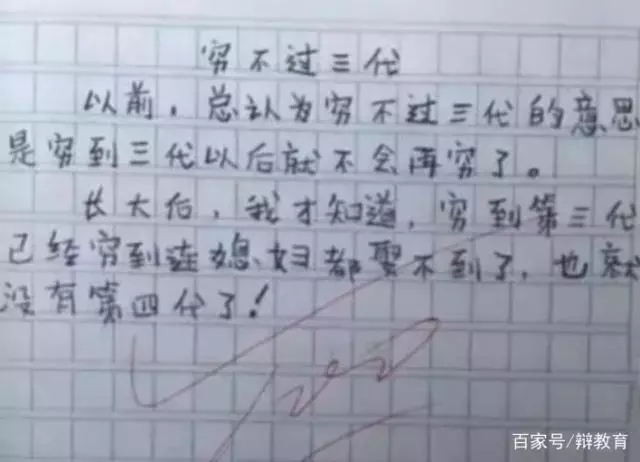 穷不过三代
以前，总认为穷不过三代的意思
是穷到三代以后就不会再穷了。
长大后，我才知道，穷到第三代
已经穷到连媳妇都娶不到了，也就
没有第四代了！
百家号/辩教育